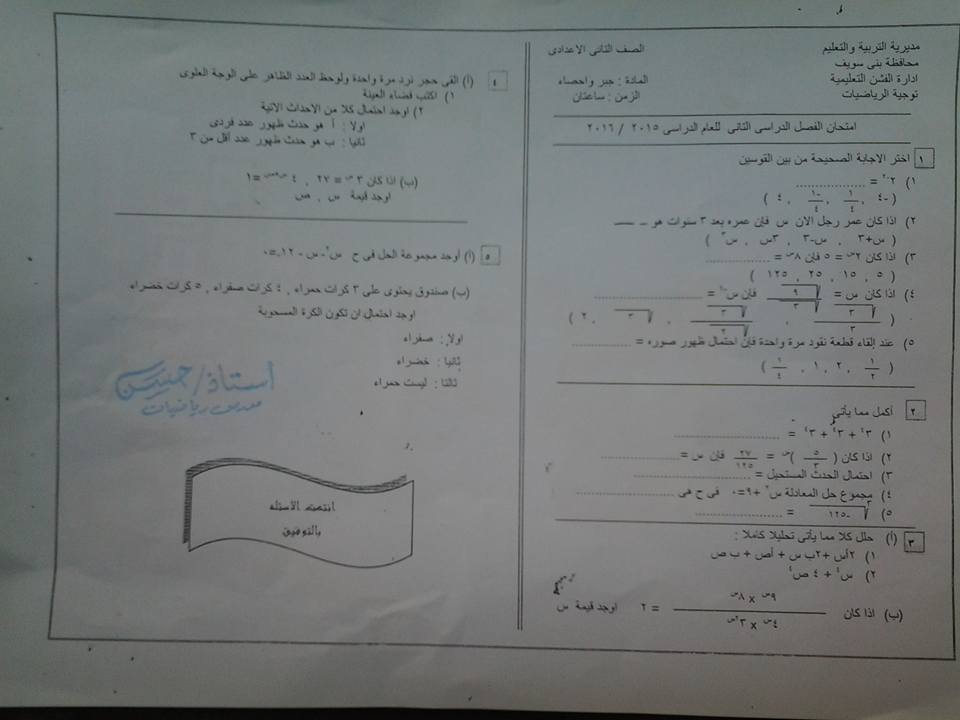 مديرية التربية والتعليم
محافظة بنى سويف
ادارة الفشن التعليمية
توجية الرياضيات
الصف الثانى الاعدادى
المادة : جبر واحصاء
الزمن : ساعتان
امتحان الفصل الدراسى الثانى للعام الدراسى ٢٠١٥ / ٢٠١٦
١ اختر الاجابة الصحيحة من بين القوسين
١) ٢⁻² = ................
( -٤ , ١/٤ , -١/٤ , ٤ )
٢) اذا كان عمر رجل الان س فإن عمره بعد ٣ سنوات هو ــ ــــ
( س+٣ , س-٣ , ٣س , س³ )
٣) اذا كان ٢^س = ٥ فإن ٨^س = ................
( ٥ , ١٥ , ٢٥ , ١٢٥ )
٤) اذا كان س = √٩/√٣ فإن س⁻¹ = ................
( √٣/٣ , √٣/√٢ , √٣ , ٢ )
٥) عند إلقاء قطعة نقود مرة واحدة فإن احتمال ظهور صوره = ................
( ١/٢ , ٢ , ١ , ١/٤ )
٢ أكمل مما يأتى
١) ٣⁴ + ٣⁴ + ٣⁴ = ................
٢) اذا كان (٥/٣)^س = ٢٧/١٢٥ فإن س = ................
٣) احتمال الحدث المستحيل = ................
٤) مجموع حل المعادلة س² +٩=٠ فى ح هى ................
٥) ∛-١٢٥ = ................
٣ (أ) حلل كلا مما يأتى تحليلا كاملا :
١) ٢أس +٢ب س + أص + ب ص
٢) س⁴ + ٤ ص⁴
(ب) اذا كان ٩^س × ٨^س / ٤^س × ٣^٢س = ٢ اوجد قيمة س
٤ (أ) القى حجر نرد مرة واحدة ولوحظ العدد الظاهر على الوجة العلوى
١) اكتب فضاء العينة
٢) اوجد احتمال كلا من الاحداث الاتية
اولا : أ هو حدث ظهور عدد فردى
ثانيا : ب هو حدث ظهور عدد أقل من ٣
(ب) اذا كان ٣^س = ٢٧ , ٤ =١
اوجد قيمة س , ص
٥ (أ) أوجد مجموعة الحل فى ح س² - س - ١٢=٠
(ب) صندوق يحتوى على ٣ كرات حمراء , ٤ كرات صفراء , ٥ كرات خضراء
اوجد احتمال ان تكون الكرة المسحوبة
اولا : صفراء
ثانيا : خضراء
ثالثا : ليست حمراء
أستاذ/ حسين
مدرس رياضيات
انتهت الأسئله
بالتوفيق